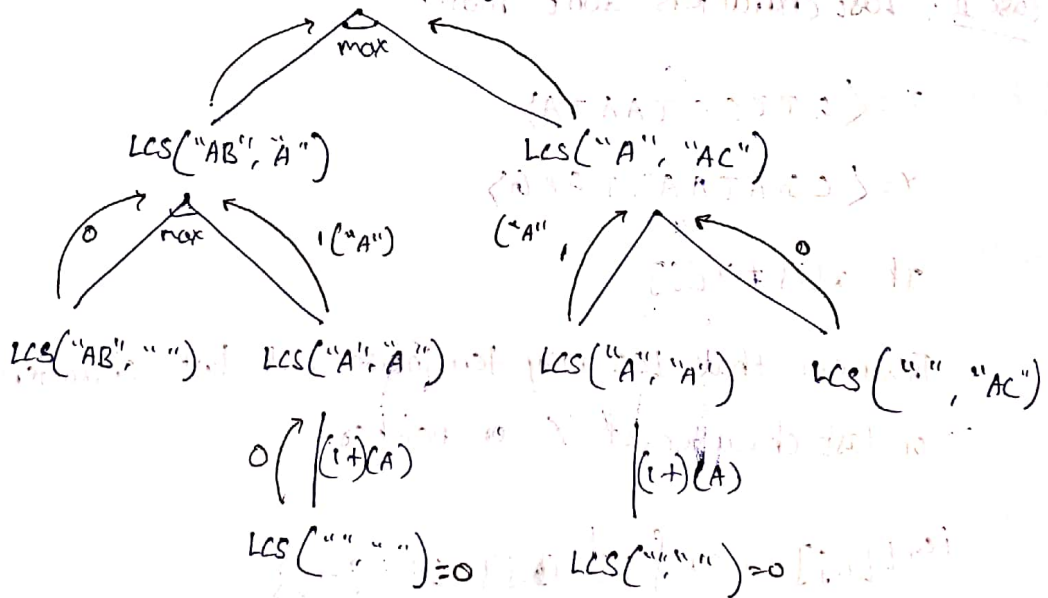 max
LCS("AB", "A") LCS("A", "AC")
0 max 1("A") ("A", 0
LCS("AB", " ") LCS("A", "A") LCS("A", "A") LCS(" ", "AC")
0 (1+)(A) (1+)(A)
LCS(" ", " ")=0 LCS(" ", " ")=0